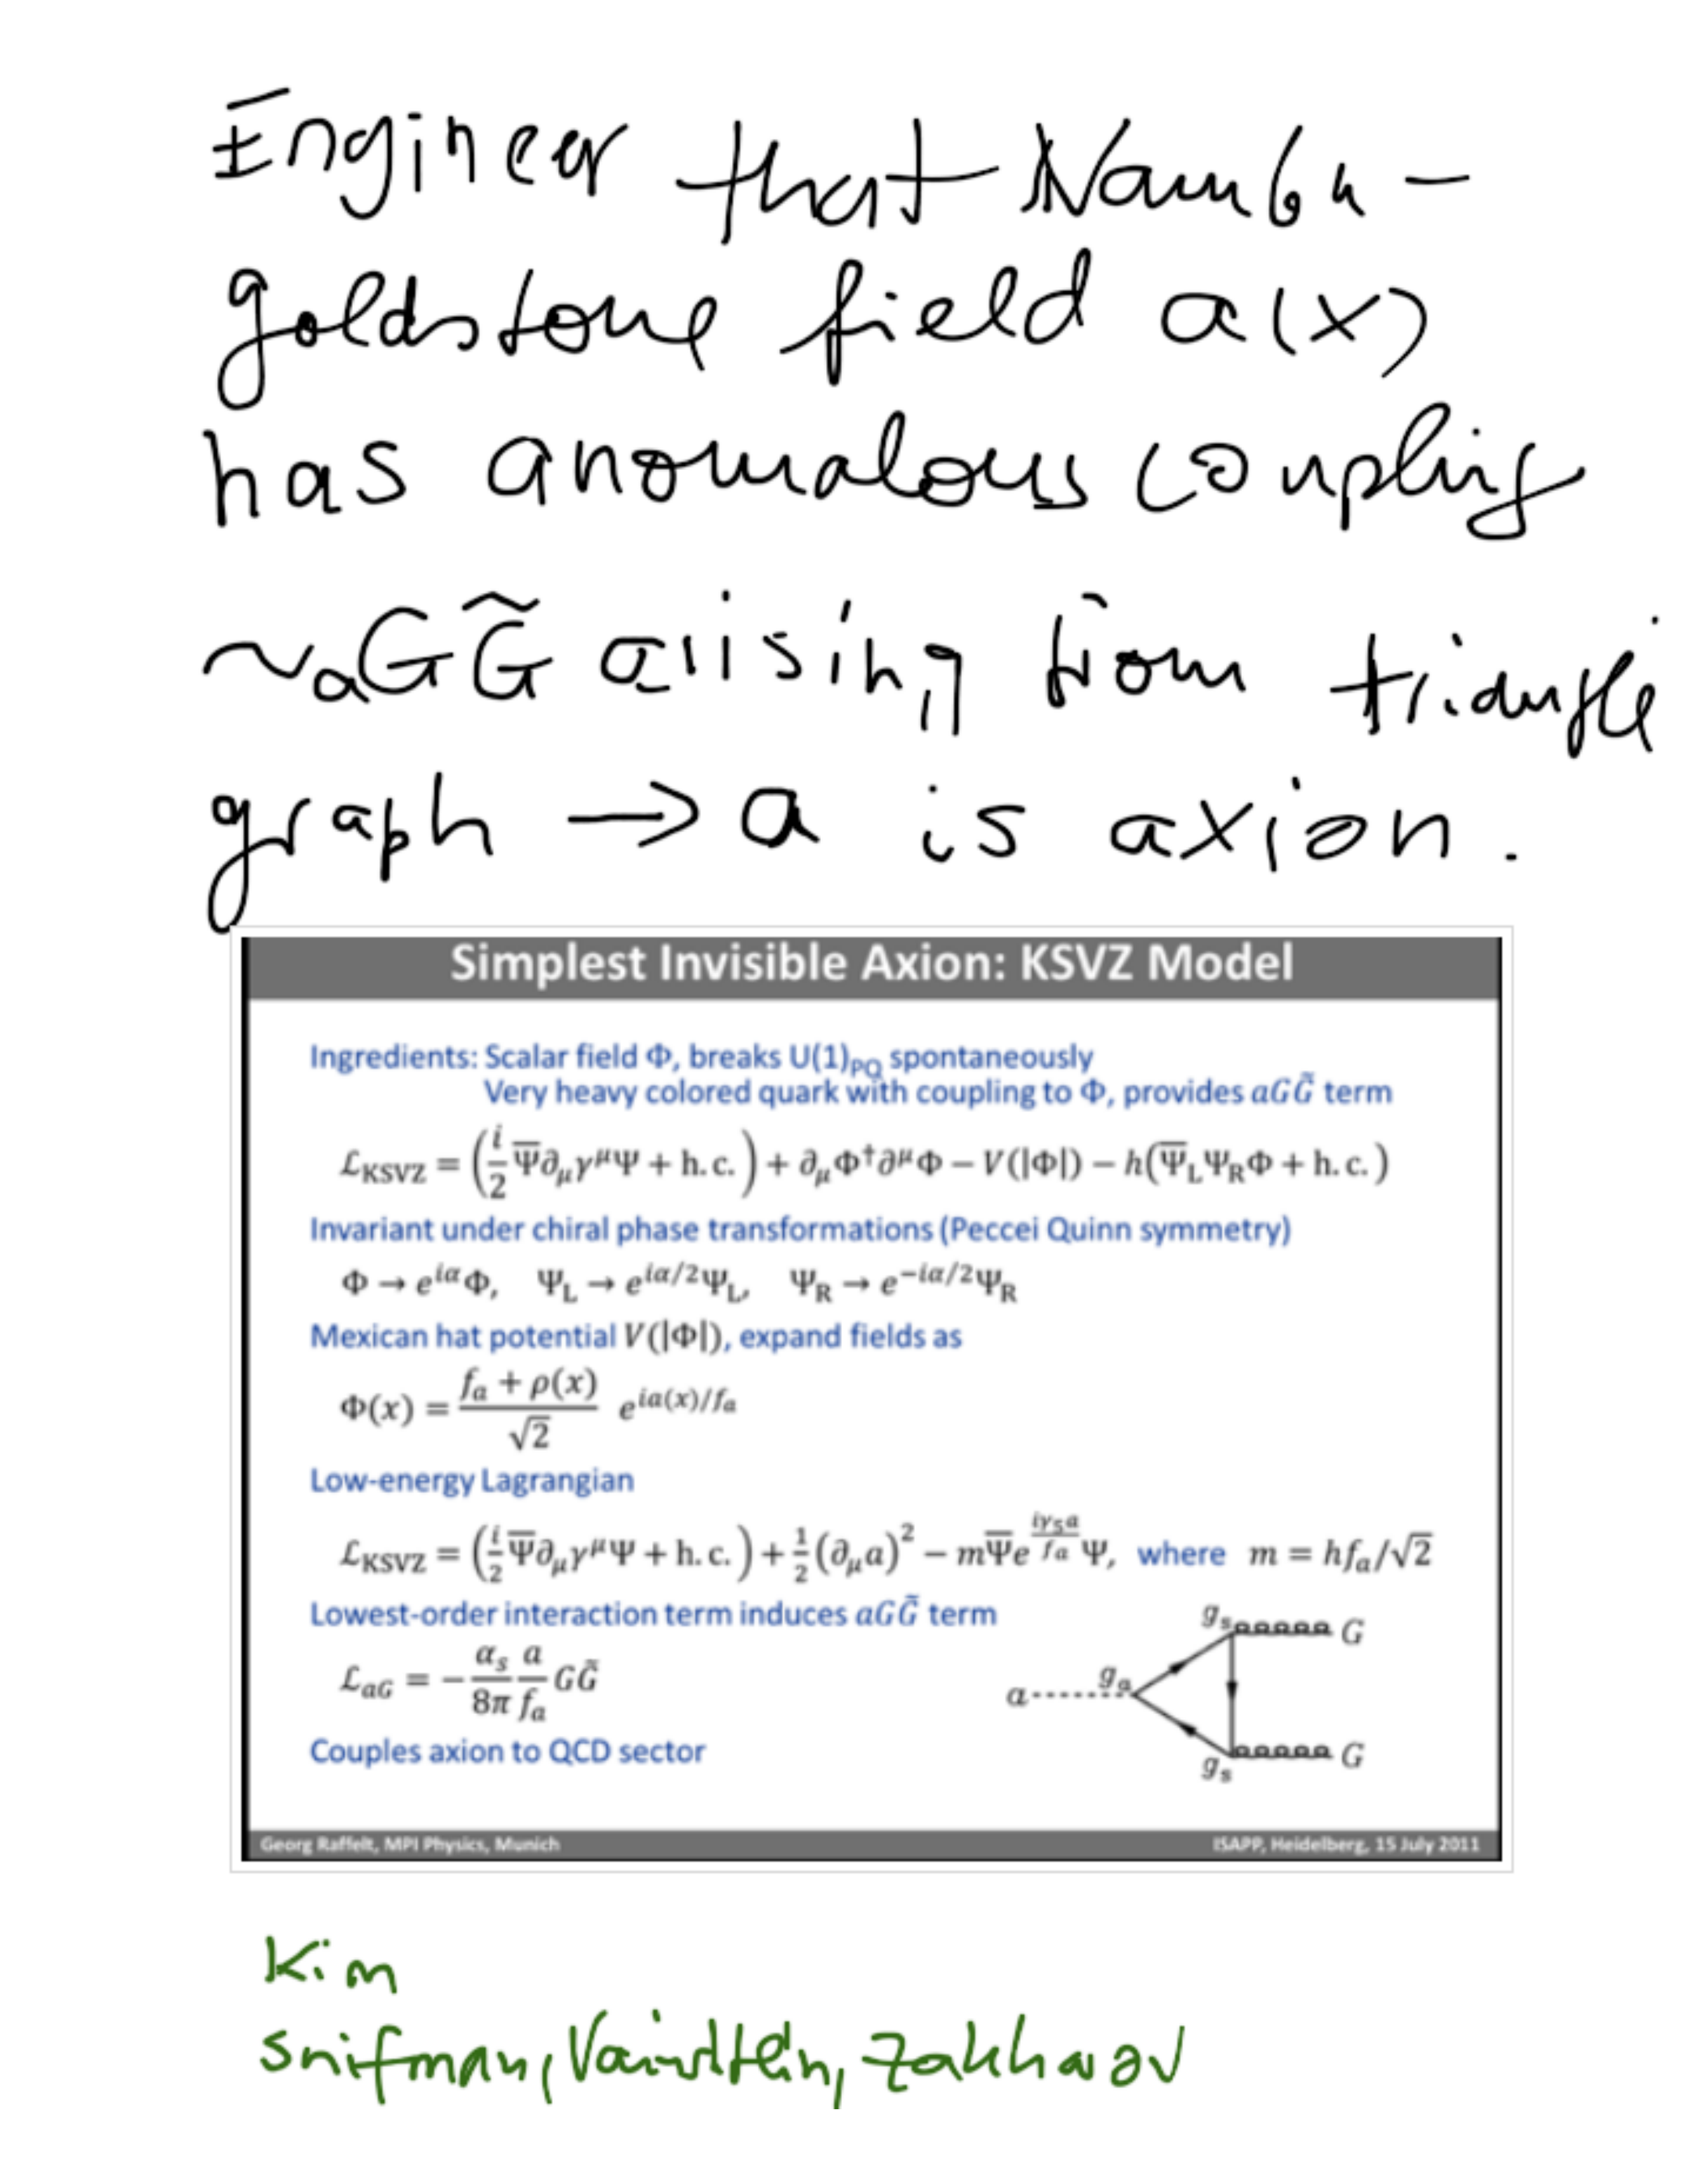 Engineer that Nambu-
goldstone field a(x)
has anomalous coupling
~aGG̃ arising from triangle
graph → a is axion.
Simplest Invisible Axion: KSVZ Model
Ingredients: Scalar field Φ, breaks U(1)PQ spontaneously
Very heavy colored quark with coupling to Φ, provides aGG̃ term
ℒKSVZ = (i/2 Ψ̅∂μγ^μΨ + h.c.) + ∂μΦ†∂^μΦ − V(|Φ|) − h(Ψ̅LΨRΦ + h.c.)
Invariant under chiral phase transformations (Peccei Quinn symmetry)
Φ → e^{iα}Φ, ΨL → e^{iα/2}ΨL, ΨR → e^{−iα/2}ΨR
Mexican hat potential V(|Φ|), expand fields as
Φ(x) = (fa + ρ(x))/√2 e^{ia(x)/fa}
Low-energy Lagrangian
ℒKSVZ = (i/2 Ψ̅∂μγ^μΨ + h.c.) + 1/2(∂μa)² − mΨ̅e^{iγ5a/fa}Ψ, where m = hfa/√2
Lowest-order interaction term induces aGG̃ term
ℒaG = − αs/8π a/fa GG̃
Couples axion to QCD sector
a ga gs G
gs G
Georg Raffelt, MPI Physics, Munich ISAPP, Heidelberg, 15 July 2011
Kim
Shifman, Vainshtein, Zakharov